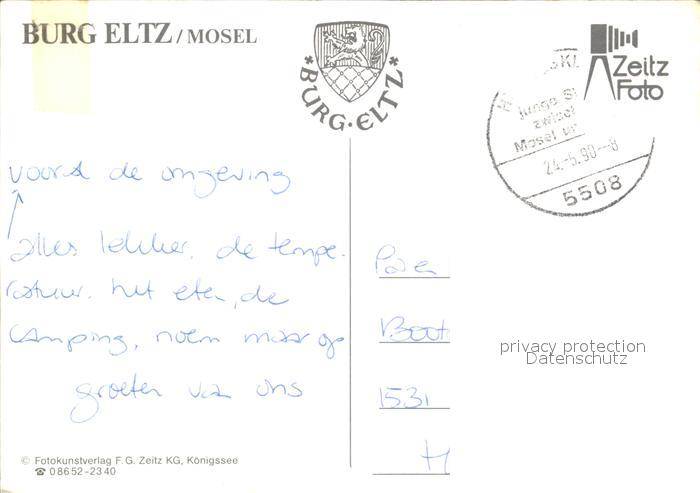 BURG ELTZ / MOSEL
*BURG·ELTZ*
Zeitz
Foto
Junge St
zwisch
Mosel un
24.-5.90--8
5508
vooral de omgeving
alles lekker, de tempe-
ratuur. het eten, de
camping, noem maar op
groeten van ons
1531
H
privacy protection
Datenschutz
© Fotokunstverlag F.G. Zeitz KG, Königssee
☎ 08652-2340